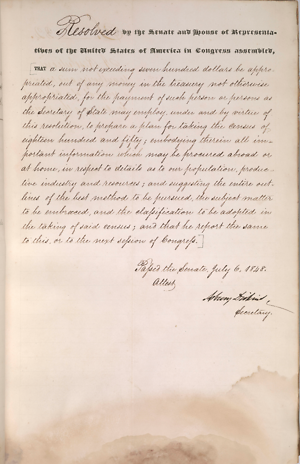 Resolved by the Senate and House of Representa-
tives of the United States of America in Congress assembled,
[THAT a sum not exceeding seven hundred dollars be appro-
priated, out of any money in the treasury not otherwise
appropriated, for the payment of such person or persons as
the Secretary of State may employ, under and by virtue of
this resolution, to prepare a plan for taking the census of
eighteen hundred and fifty; embodying therein all im-
portant information which may be procured abroad or
at home, in respect to details as to our population, produc-
tive industry and resources; and suggesting the entire out-
lines of the best method to be pursued, the subject matter
to be embraced, and the classification to be adopted in
the taking of said census; and that he report the same
to this, or to the next session of Congress.]
Passed the Senate, July 6, 1848.
Attest,
Asbury Dickins,
Secretary.